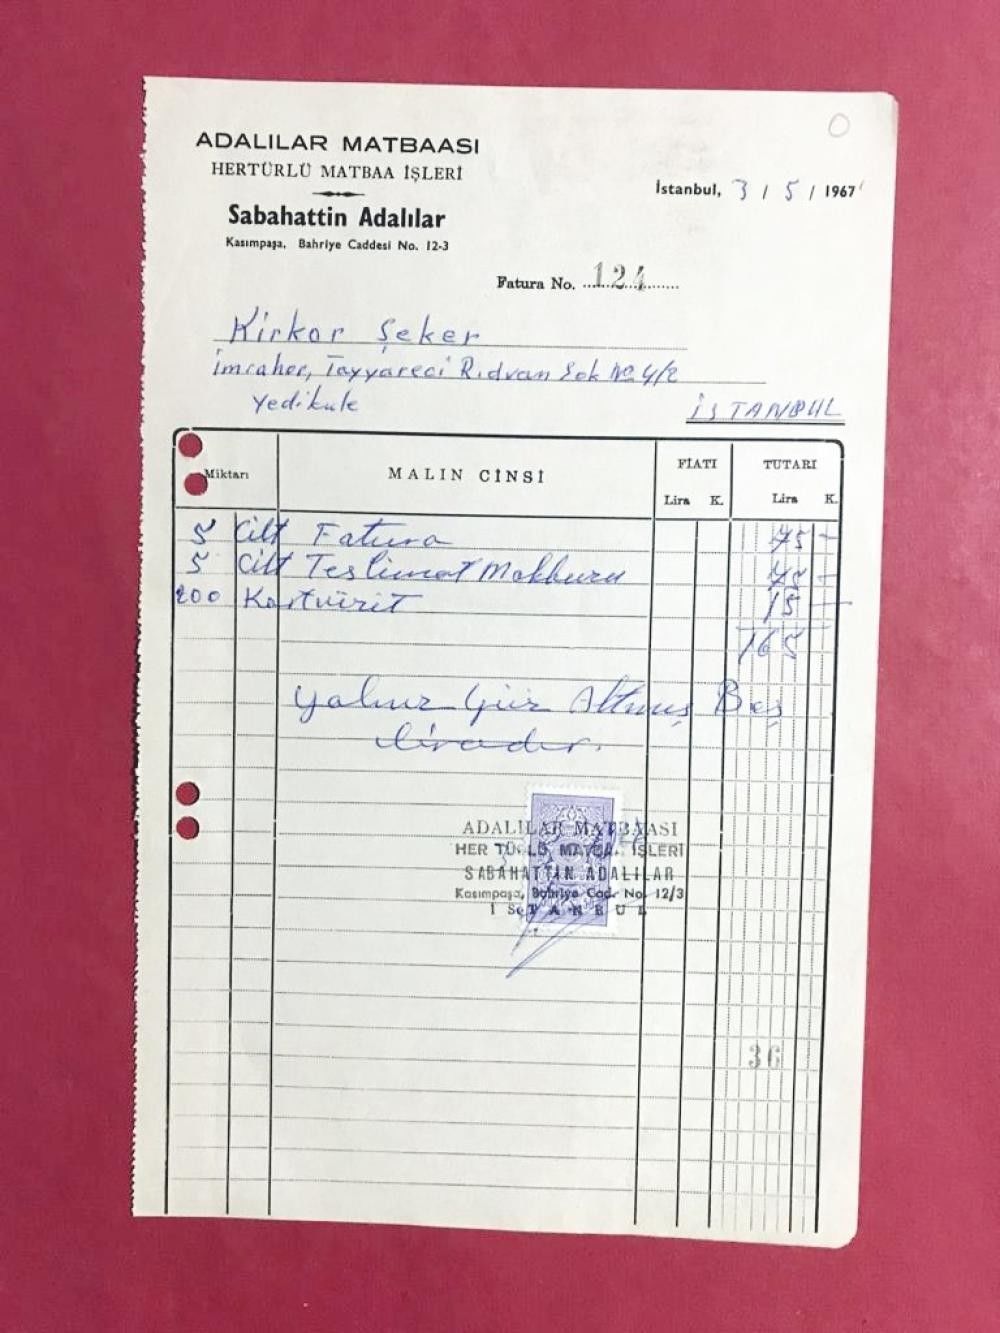 ADALILAR MATBAASI
HERTÜRLÜ MATBAA İŞLERİ
Sabahattin Adalılar
Kasımpaşa, Bahriye Caddesi No. 12-3
İstanbul, 3 / 5 / 1967
Fatura No. 124
Kirkor Şeker
İmraher, Tayyareci Rıdvan Sok No 4/2
Yedikule
İSTANBUL
Miktarı MALIN CİNSİ FİATI TUTARI
Lira K. Lira K.
5 Cilt Fatura 75 -
5 Cilt Teslimat Makbuzu 75 -
200 Kartvizit 15 -
165
Yalnız Yüz Altmış Beş
liradır.
ADALILAR MATBAASI
HER TÜRLÜ MATBAA İŞLERİ
SABAHATTİN ADALILAR
Kasımpaşa, Bahriye Cad. No. 12/3
İSTANBUL